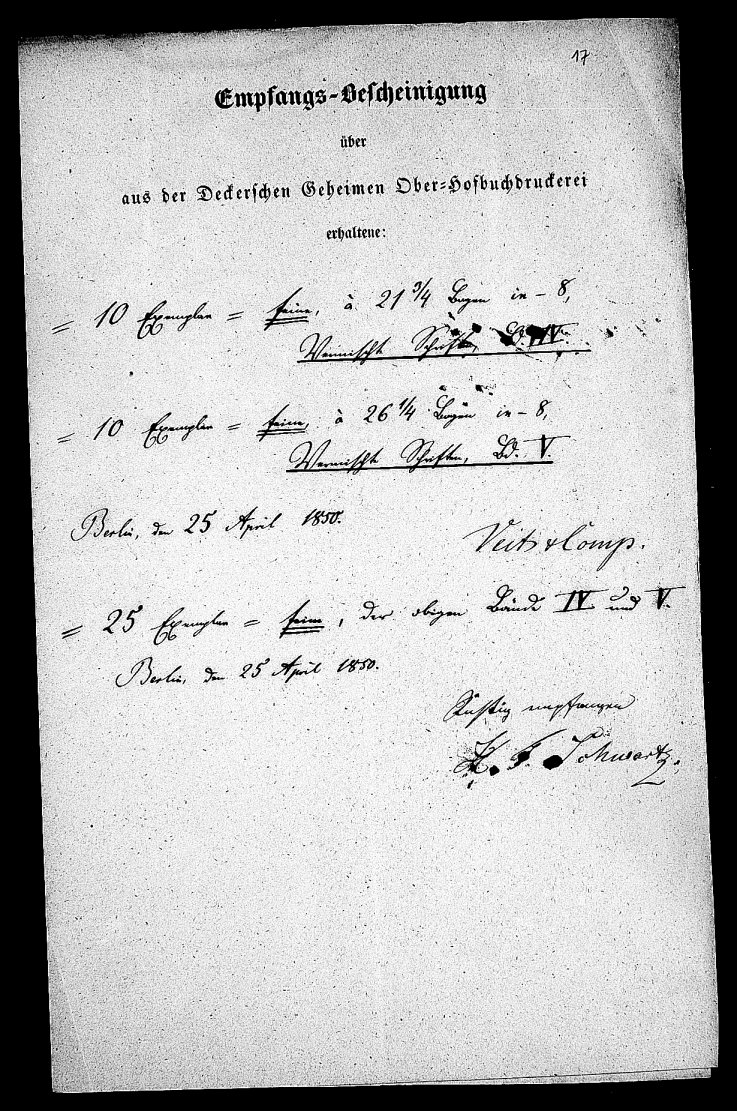 17
Empfangs-Bescheinigung
über
aus der Deckerschen Geheimen Ober-Hofbuchdruckerei
erhaltene:
= 10 Exemplar = feine, à 21 3/4 Bogen in - 8,
Vermischte Schriften, Bd. IV.
= 10 Exemplar = feine, à 26 1/4 Bogen in - 8,
Vermischte Schriften, Bd. V.
Berlin, den 25 April 1850.
Veit & Comp.
= 25 Exemplar = feine, der obigen Bände IV. und V.
Berlin, den 25 April 1850.
Richtig empfangen
K. F. Schwartz.